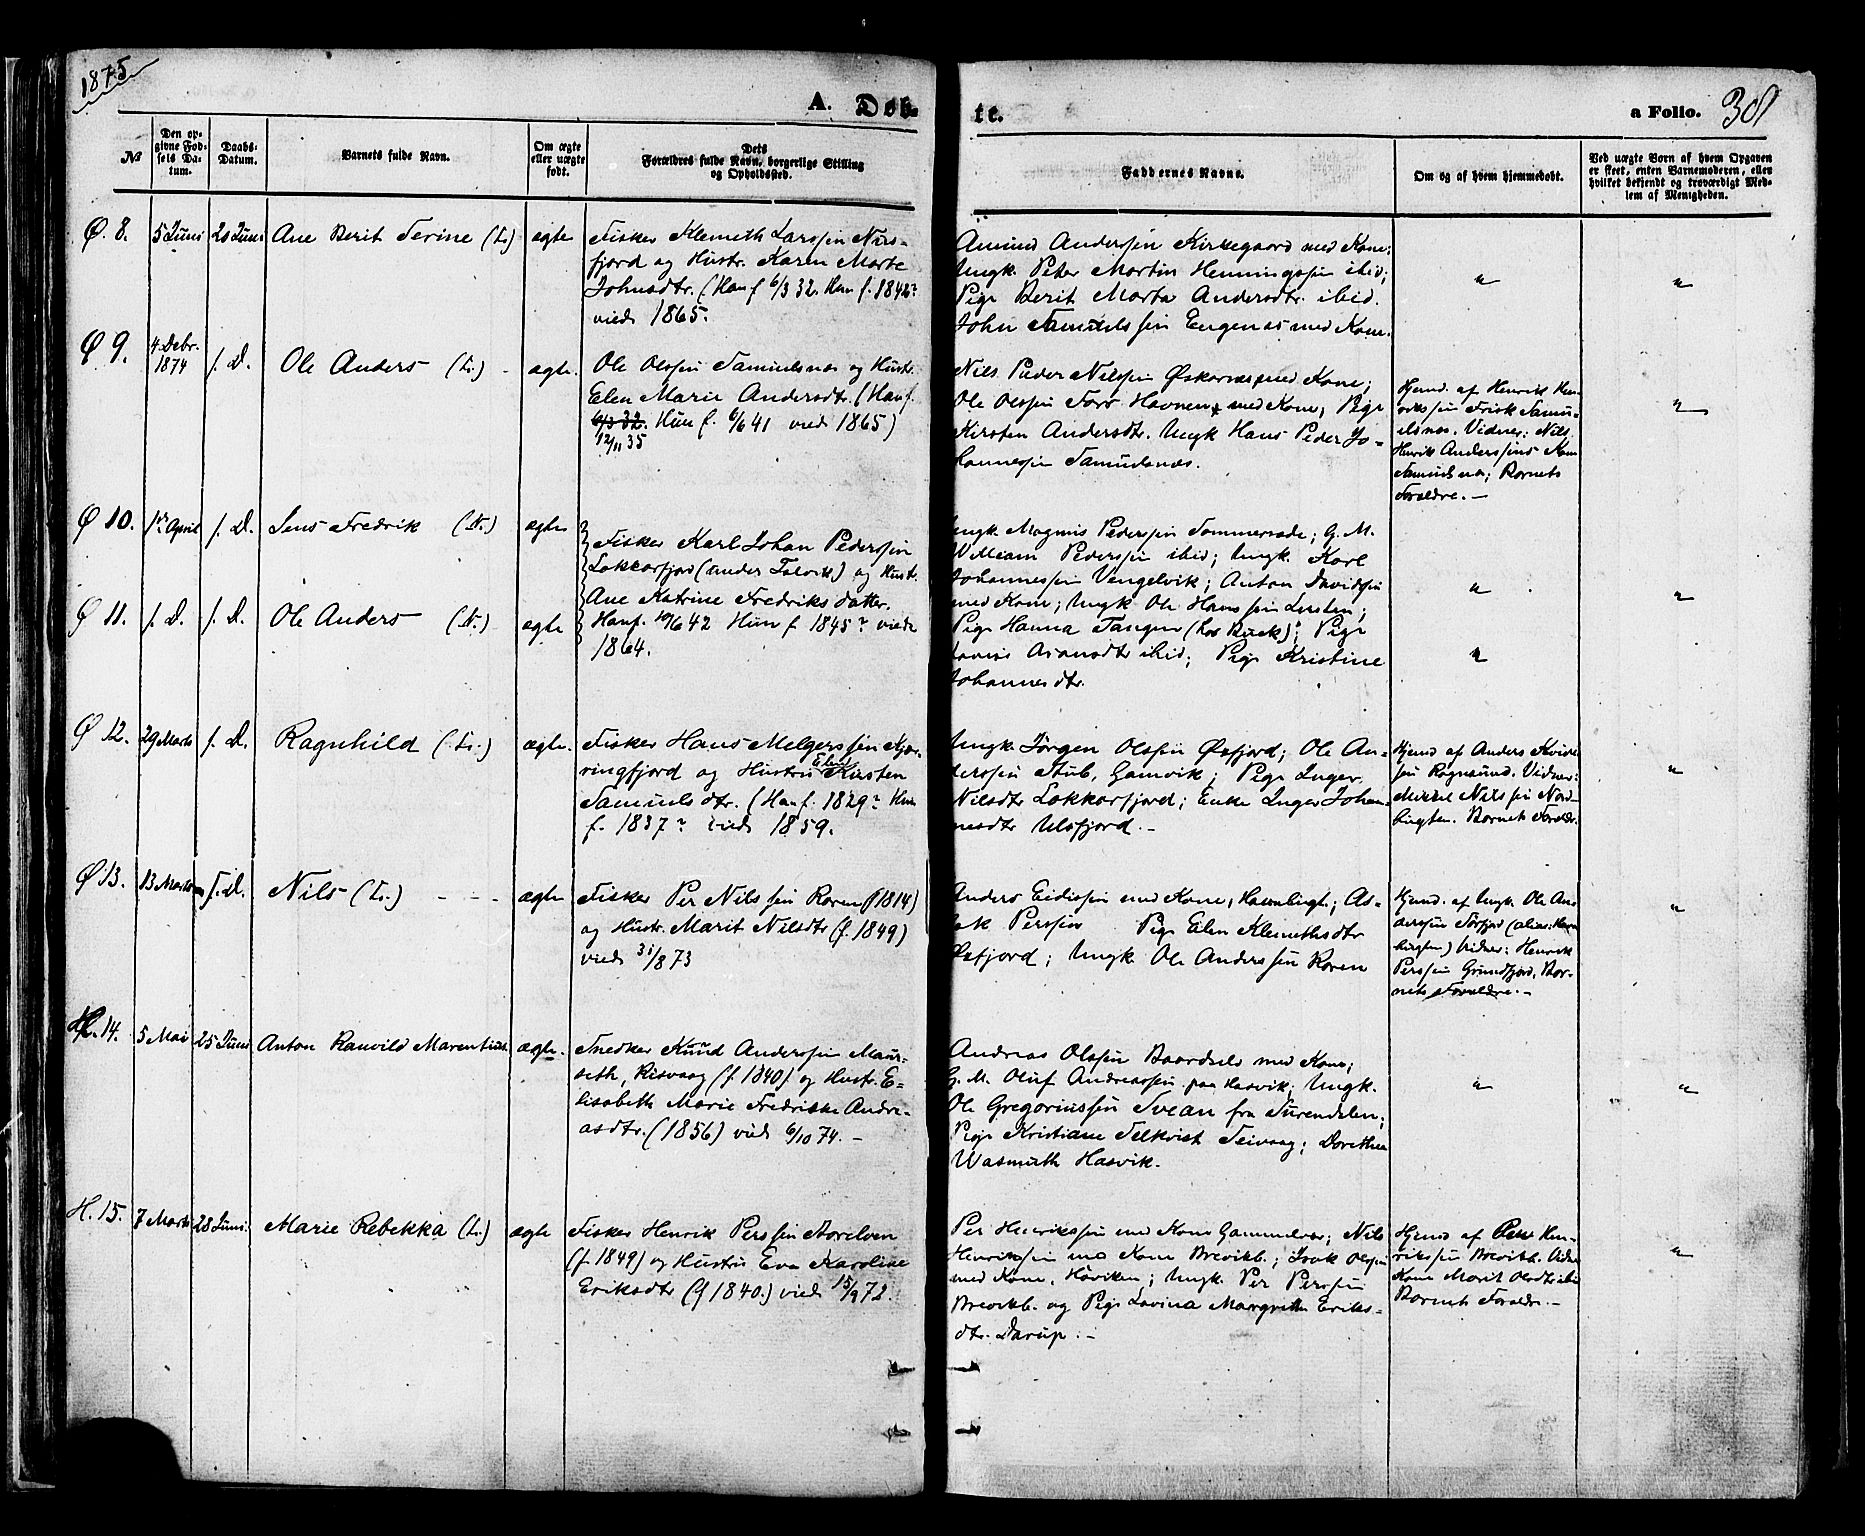 1875
A. Døb-
te.
a Folio. 301
№
Den op-
givne Fød-
sels Da-
tum.
Daabs-
Datum.
Barnets fulde Navn.
Om ægte
eller uægte
født.
Dets
Forældres fulde Navn, borgerlige Stilling
og Opholdssted.
Faddernes Navne.
Om og af hvem hjemmedøbt.
Ved uægte Børn af hvem Opgaven
er skeet, enten Barnemoderen, eller
hvilket bekjendt og troværdigt Med-
lem af Menigheden.
Ø. 8. 5 Juni 20 Juni Ane Berit Serine (L.) ægte
Fisker Klemeth Larssen Nus-
fjord og Hustr. Karen Marte
Johnsdtr. (Han f. 6/3 32. Hun f. 1842?
viede 1865.
Amund Anderssen Kirkegaard med Kone;
Ungk. Peter Martin Henningssen ibid;
Pige Berit Marta Andersdtr. ibid.
John Samuelssen Eugenæs med Kone.
"
"
Ø 9. 4 Debr. 1874 s. D. Ole Anders (L.) ægte.
Ole Olssen Samuelsnæs og Hustr.
Elen Marie Andersdtr. (Han f.
6/3 32. Hun f. 6/6 41 viede 1865)
12/11 35
Nils Peder Nilssen Øskarnæs med Kone;
Ole Olssen Havnen med Kone; Pige
Kirsten Andersdtr. Ungk Hans Peder Jo-
hannessen Samuelsnæs.
Hjemd. af Henrik Hen-
rikssen Samu-
elsnæs. Vidner: Nils
Henrik Anderssens Kone
Samuelsnæs; Barnets
Forældre. –
"
Ø 10. 1ste April s. D. Jens Fredrik (N.) ægte
Fisker Karl Johan Pederssen
Lokkarfjord (under Talvik) og Hustr.
Ane Katrine Fredriksdatter.
Han f. 10/6 42 Hun f 1845? viede
1864.
Ungk. Magnus Pederssen Sommersæde; G. M.
William Pederssen ibid; Ungk. Karl
Johannessen Vengelvik; Anton Davidssen
med Kone; Ungk Ole Hanssen Lersten;
Pige Hanna Tangen (hos Buck); Pige
Aronsdtr ibid; Pige Kristine
Johannesdtr.
"
"
Ø 11. s. D. s. D. Ole Anders (N.) ægte
"
Ø 12. 29 Marts s. D. Ragnhild (L.) ægte.
Fisker Hans Melgerssen Kjær-
ringfjord og Hustru Elen Kirsten
Samuelsdtr. (Han f. 1829? Hun
f. 1837? viede 1859.
Ungk. Jørgen Olssen Øxfjord; Ole An-
derssen Stub, Gamvik; Pige Inger
Nilsdtr Lokkarfjord; Enke Inger Johan-
nesdtr Ulsfjord. –
Hjemd af Anders
sen Rognsund. Vidner:
Mikkel Nilssen Nord-
bugten. Barnets Forældr.
"
Ø 13. 13 Marts s. D. Nils (L.) ægte
Fisker Per Nilssen Koven (f 1814)
og Hustr. Marit Nilsdtr (f. 1849)
viede 31/8 73
Anders med Kone, Havnbugt.; As-
lak Perssen Pige Elen Klemethsdtr
Øxfjord; Ungk Ole Anderssen Koven
Hjemd. af Ungk. Ole An-
derssen (alias: Havn
bugten) Vidner: Henrik
Perssen Grundfjord. Bar-
nets Forældre. –
"
H. 14. 5 Mai 25 Juni Anton Ranvild Marentius. ægte.
Snedker Knud Anderssen Maur-
seth, Risvaag (f 1840) og Hustr. E-
lisabeth Marie Fredrikke Andre-
asdtr. (1856) viede 6/10 74. –
Andreas Olssen Baardsels med Kone;
G. M. Oluf Andreassen paa Hasvik; Ungk.
Ole Gregoriussen Svean fra Surendalen;
Pige Kristiane Selkvist Seivaag; Dorothea
Wasmuth Hasvik.
"
"
H. 15. 7 Marts 28 Juni. Marie Rebekka (L.) ægte
Fisker Henrik Perssen Storelven
(f 1849) og Hustru Eva Karoline
Eriksdtr (f 1840.) viede 15/9 72.
Per Henrikssen med Kone Gammelvær; Nils
Henrikssen med Kone Brevikb.; Isak Olssen
med Kone, Høviken; Ungk. Per Perssen
Brevikb. og Pige Lovina Margrethe Eriks-
dtr. Darup. –
Hjemd af Peter Hen-
rikssen Brevikb. Vidner
Kone Marit Olsdtr ibid
Barnets Forældre. –
"